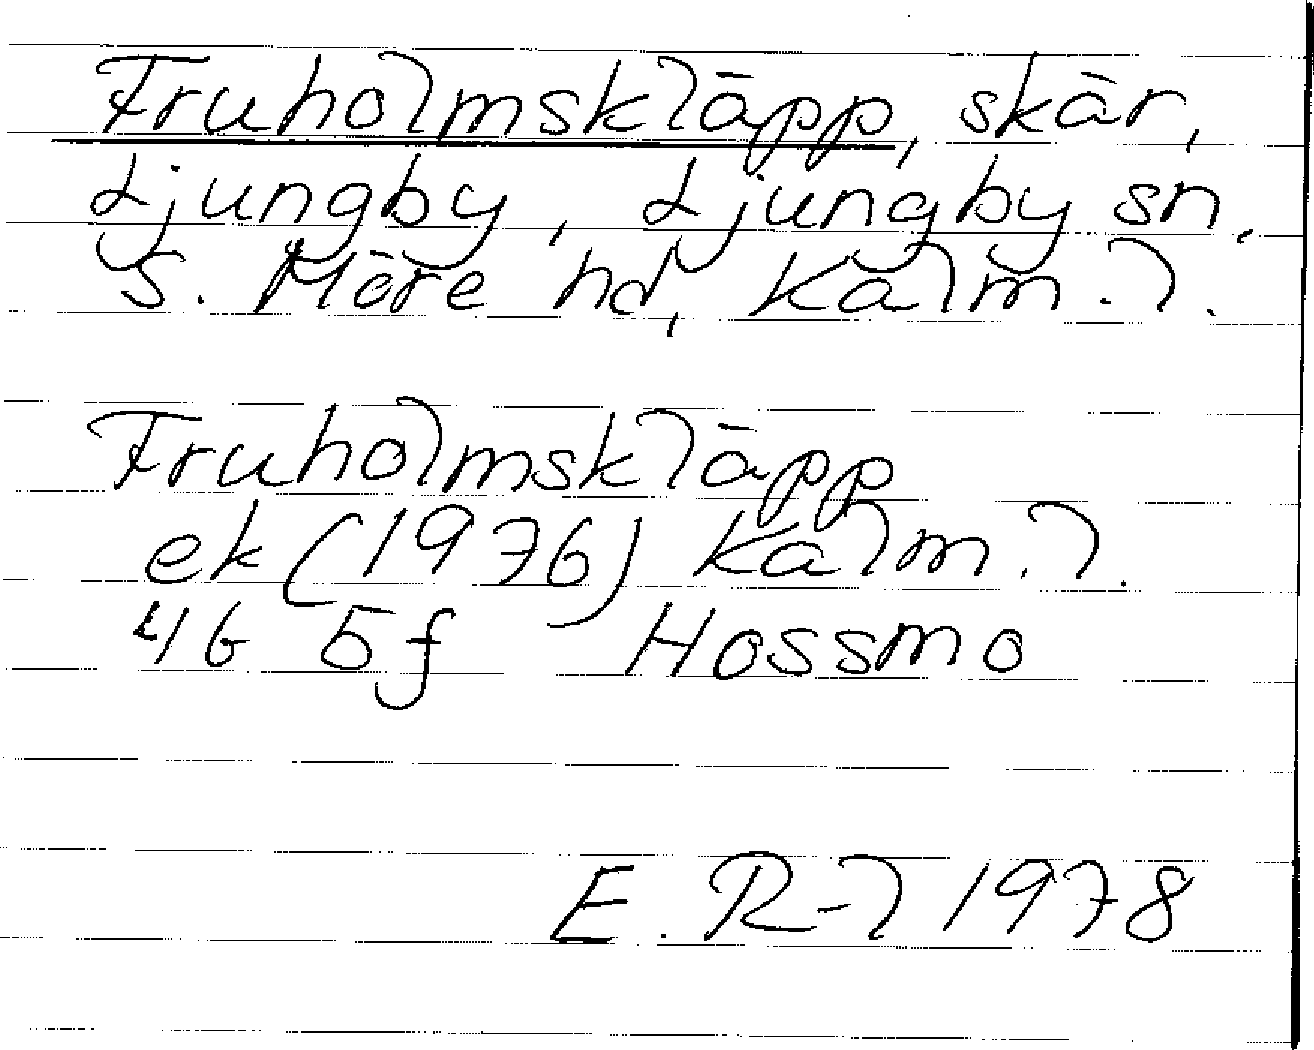 Fruholmskläpp, skär,
Ljungby, Ljungby sn,
S. Möre hd, Kalm. l.
Fruholmskläpp
ek (1976) Kalm. l.
4G 5f Hossmo
E. R-l 1978